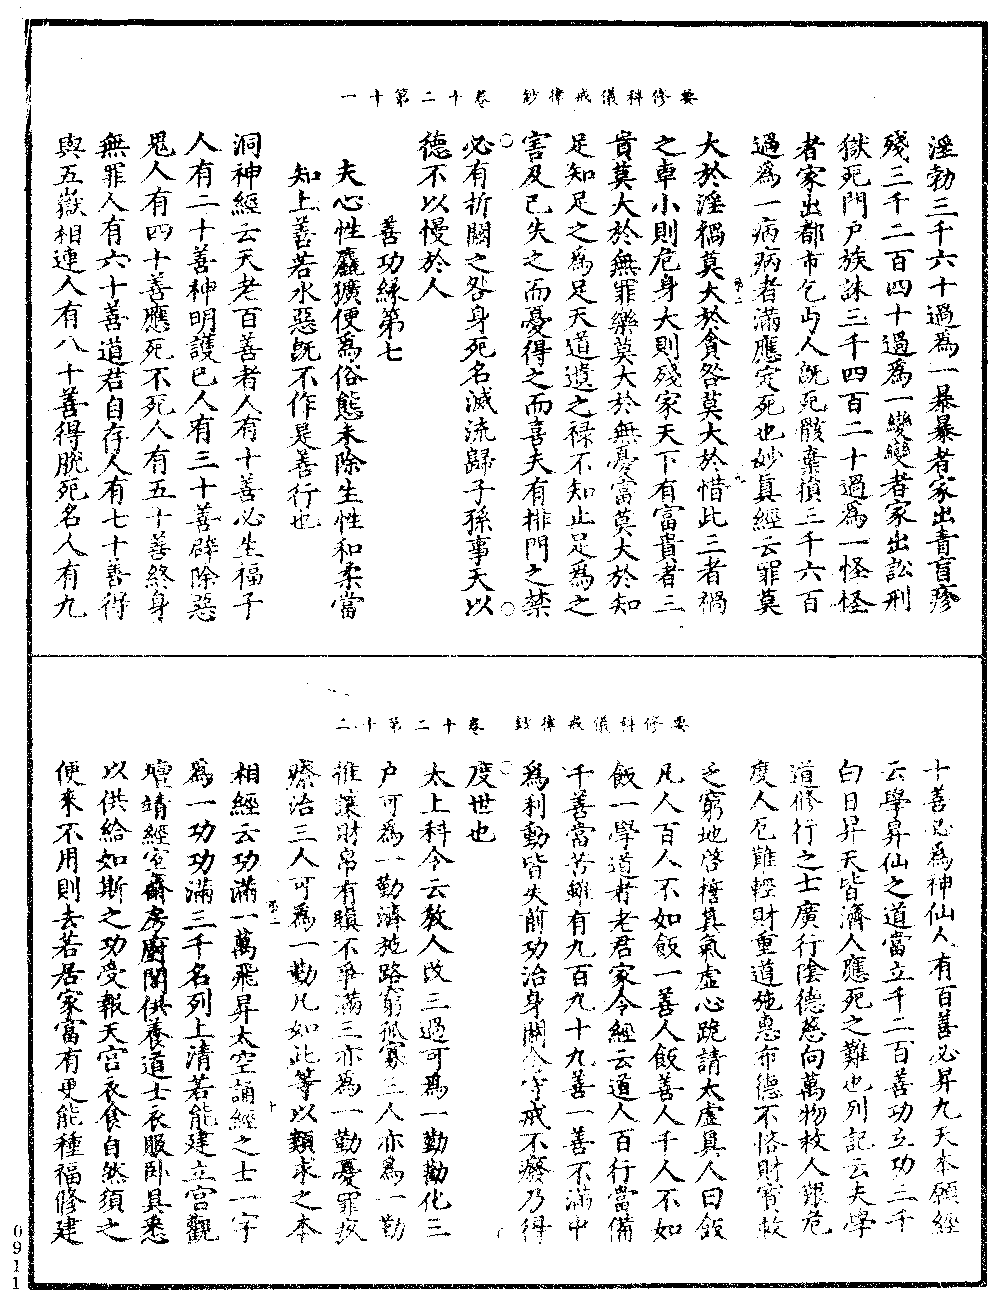 要修科儀戒律鈔　卷十二第十一
淫勃三千六十過爲一暴暴者家出青盲疹
殘三千二百四十過爲一變變者家出訟刑
獄死門戶族誅三千四百二十過爲一怪怪
者家出都市乞丐人旣死骸棄損三千六百
過爲一病病者滿應定死也妙真經云罪莫
大於淫禍莫大於貪咎莫大於惜此三者禍
之車小則危身大則殘家天下有富貴者三
貴莫大於無罪樂莫大於無憂富莫大於知
足知足之爲足天道遺之祿不知止足爲之
害及己失之而憂得之而喜夫有排門之禁
必有折關之咎身死名滅流歸子孫事天以
德不以慢於人
善功緣第七
夫心性麤獷便爲俗態未除生性和柔當
知上善若水惡旣不作是善行也
洞神經云天老百善者人有十善必生福子
人有二十善神明護已人有三十善辟除惡
鬼人有四十善應死不死人有五十善終身
無罪人有六十善道君自存人有七十善得
與五嶽相連人有八十善得脫死名人有九
要修科儀戒律鈔　卷十二第十二
十善必爲神仙人有百善必昇九天本願經
云學昇仙之道當立千二百善功立功三千
白日昇天皆濟人應死之難也列記云夫學
道修行之士廣行陰德慈向萬物救人艱危
度人厄難輕財重道施惠布德不悋財寶救
乏窮地啓撜真氣虛心跪請太虛真人曰飯
凡人百人不如飯一善人飯善人千人不如
飯一學道者老君家令經云道人百行當備
千善當苦雖有九百九十九善一善不滿中
爲利動皆失前功治身關念守戒不廢乃得
度世也
太上科令云教人改三過可爲一勤勸化三
戶可爲一勤濟施路窮孤寡三人亦爲一勤
推讓財帛有賑不爭滿三亦爲一勤憂罪疾
療治三人可爲一勤凡如此等以類求之本
相經云功滿一萬飛昇太空誦經之士一字
爲一功功滿三千名列上清若能建立宮觀
壇靖經室齋房廚閣供養道士衣服臥具悉
以供給如斯之功受報天宮衣食自然須之
便來不用則去若居家富有更能種福修建
0911